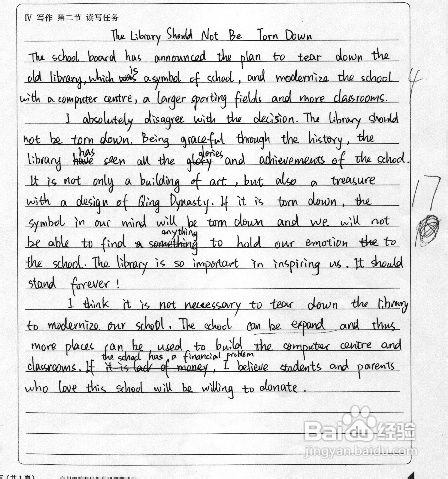 IV 写作 第二节 读写任务
The Library Should Not Be Torn Down
The school board has announced the plan to tear down the
old library, which is a symbol of school, and modernize the school
with a computer centre, a larger sporting fields and more classrooms.
I absolutely disagree with the decision. The library should
not be torn down. Being graceful through the history, the
library has seen all the glories and achievements of the school.
It is not only a building of art, but also a treasure
with a design of Qing Dynasty. If it is torn down, the
symbol in our mind will be torn down and we will not
be able to find anything to hold our emotion to
the school. The library is so important in inspiring us. It should
stand forever!
I think it is not necessary to tear down the library
to modernize our school. The school can be expand and thus
more places can be used to build the computer centre and
classrooms. If the school has a financial problem, I believe students and parents
who love this school will be willing to donate.
4
17
Baidu 经验
jingyan.baidu.com